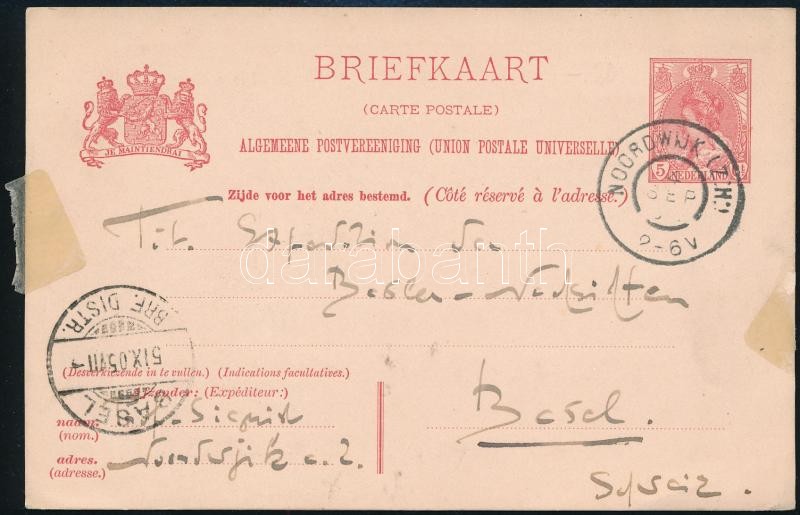 BRIEFKAART
(CARTE POSTALE)
ALGEMEENE POSTVEREENIGING (UNION POSTALE UNIVERSELLE)
JE MAINTIENDRAI
5 NEDERLAND
NOORDWIJK (Z.H.)
SEP
2-6V
Zijde voor het adres bestemd. (Côté réservé à l'adresse.)
Tit. Expedition der
Basler-Nachrichten
darabanth
BRF. DISTR.
5 IX.05 VII
BASEL
(Desverkiezende in te vullen.) (Indications facultatives.)
Afzender: (Expéditeur:)
naam.
(nom.)
Basel.
adres. Noordwijk a. Z.
(adresse.)